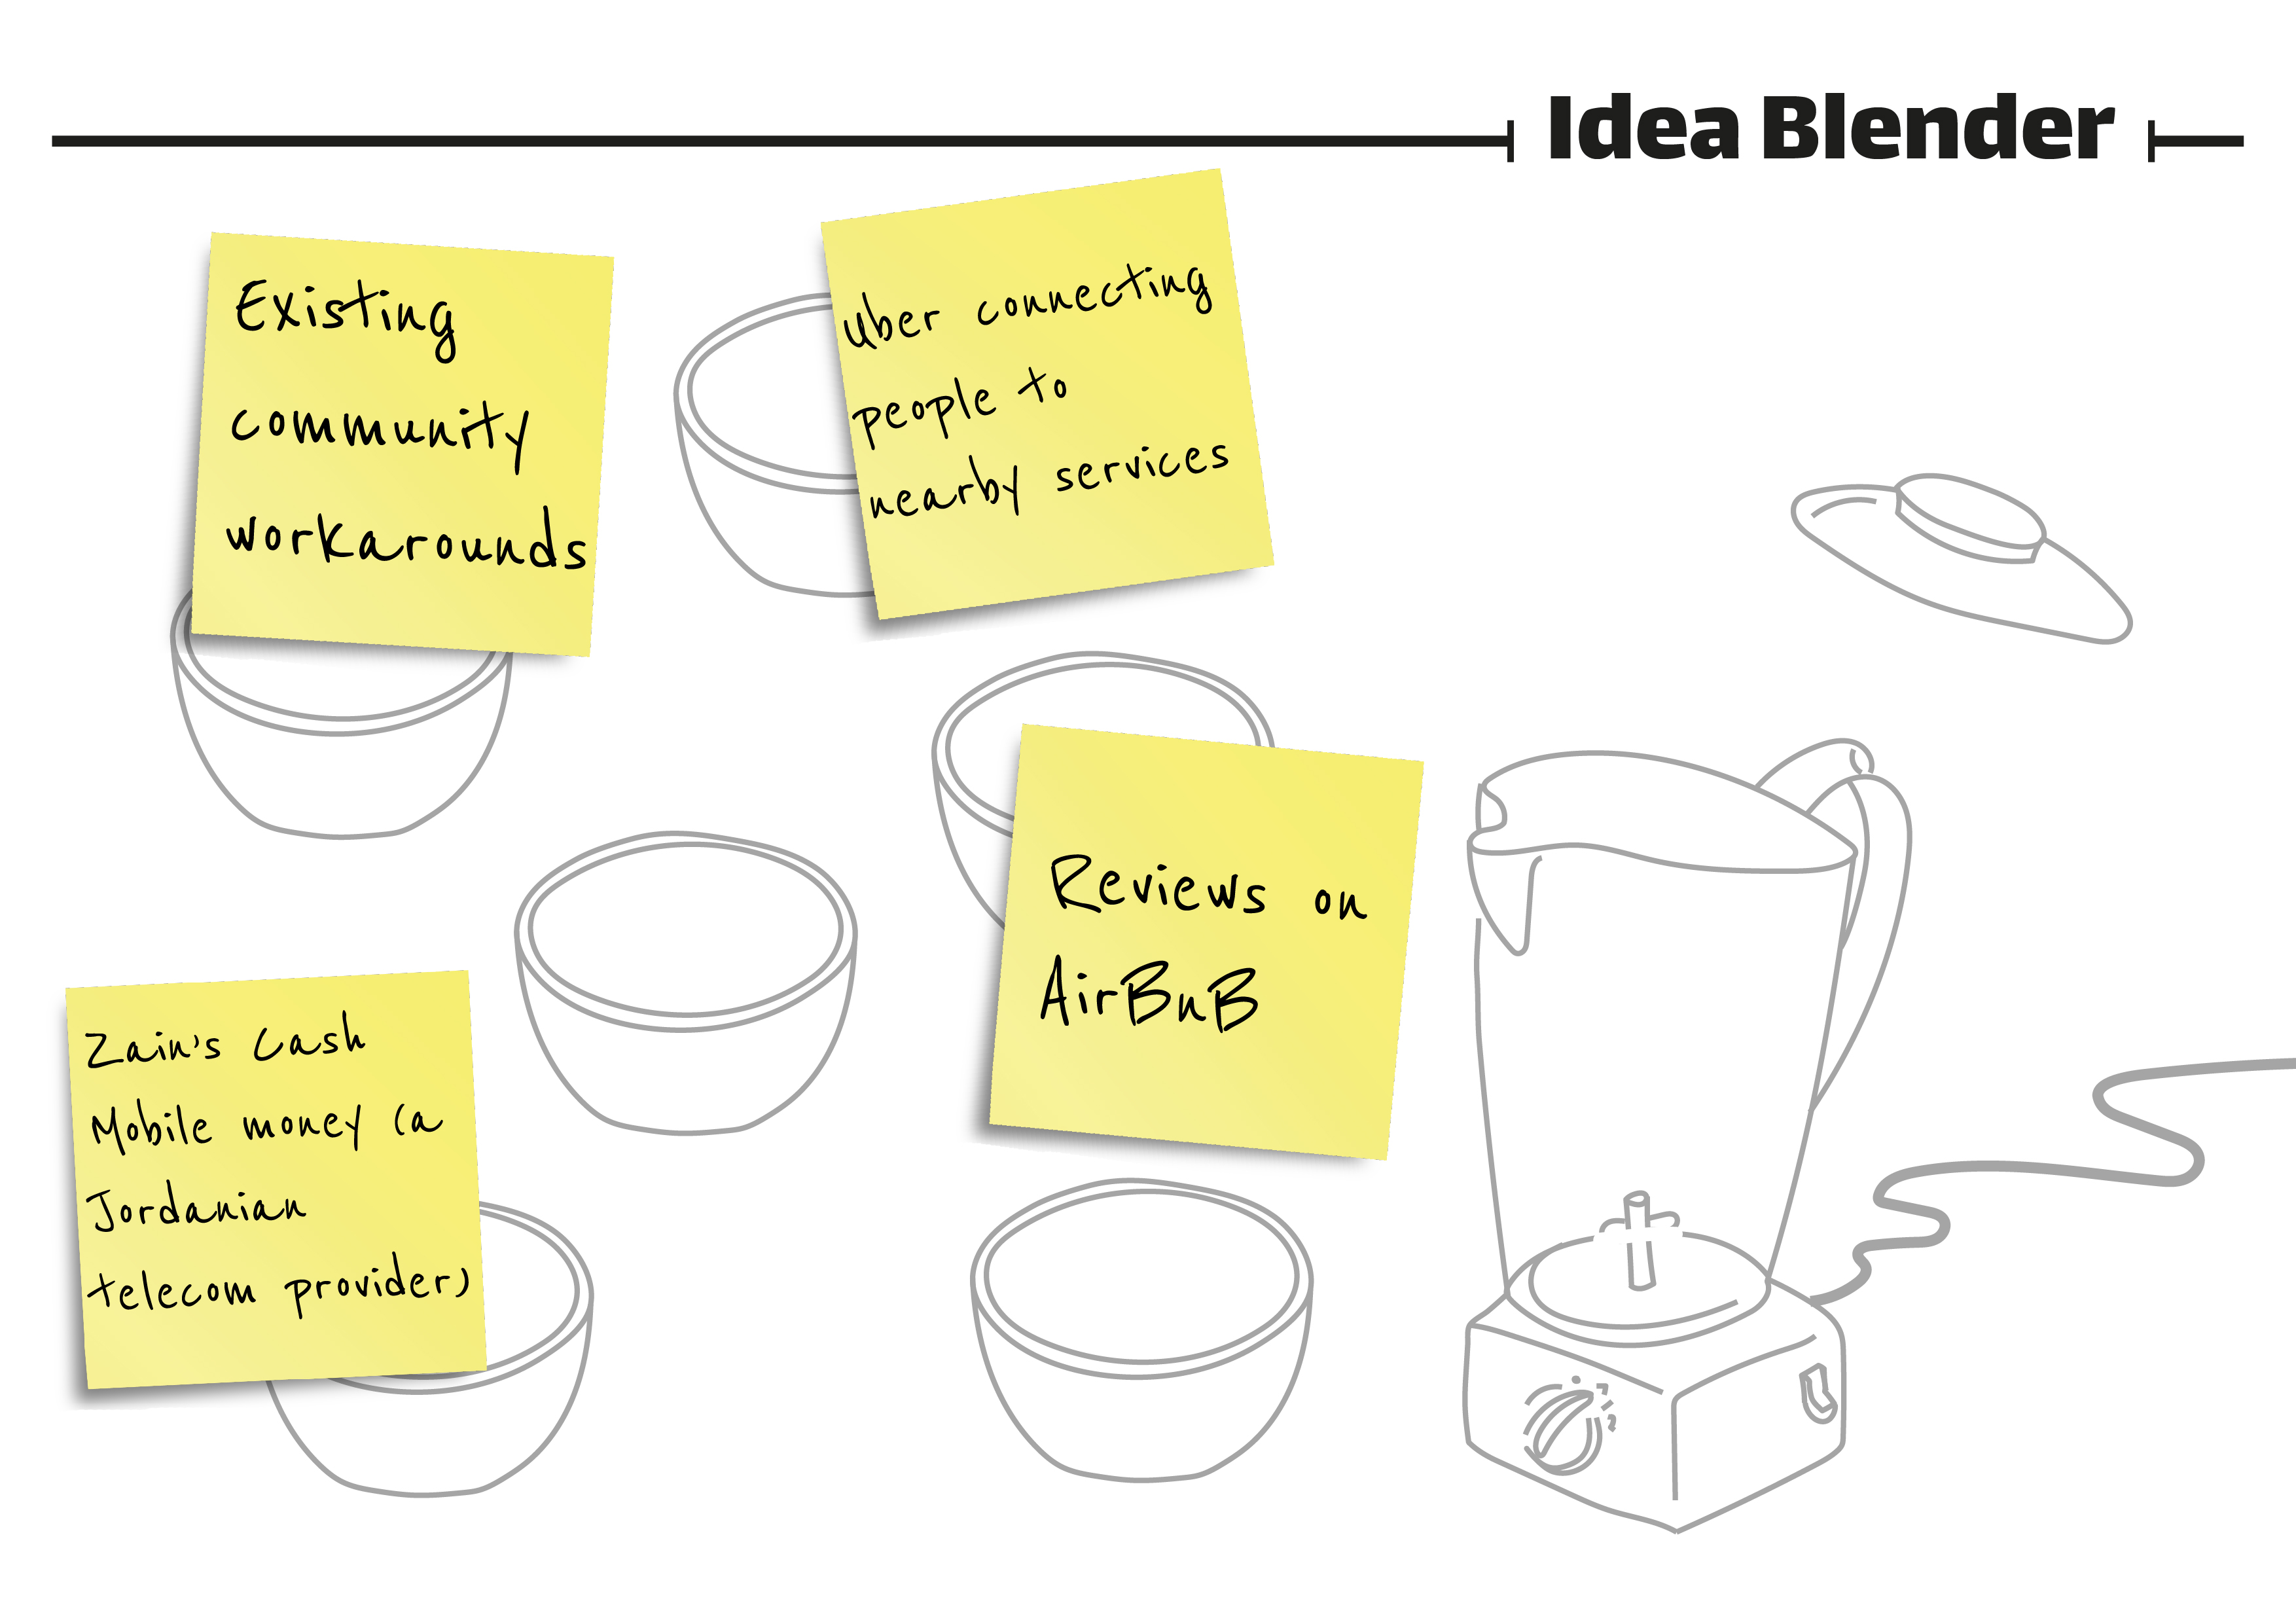 Idea Blender
Existing
community
workarounds
Uber connecting
people to
nearby services
Reviews on
AirBnB
Zain's Cash
Mobile money (a
Jordanian
telecom provider)